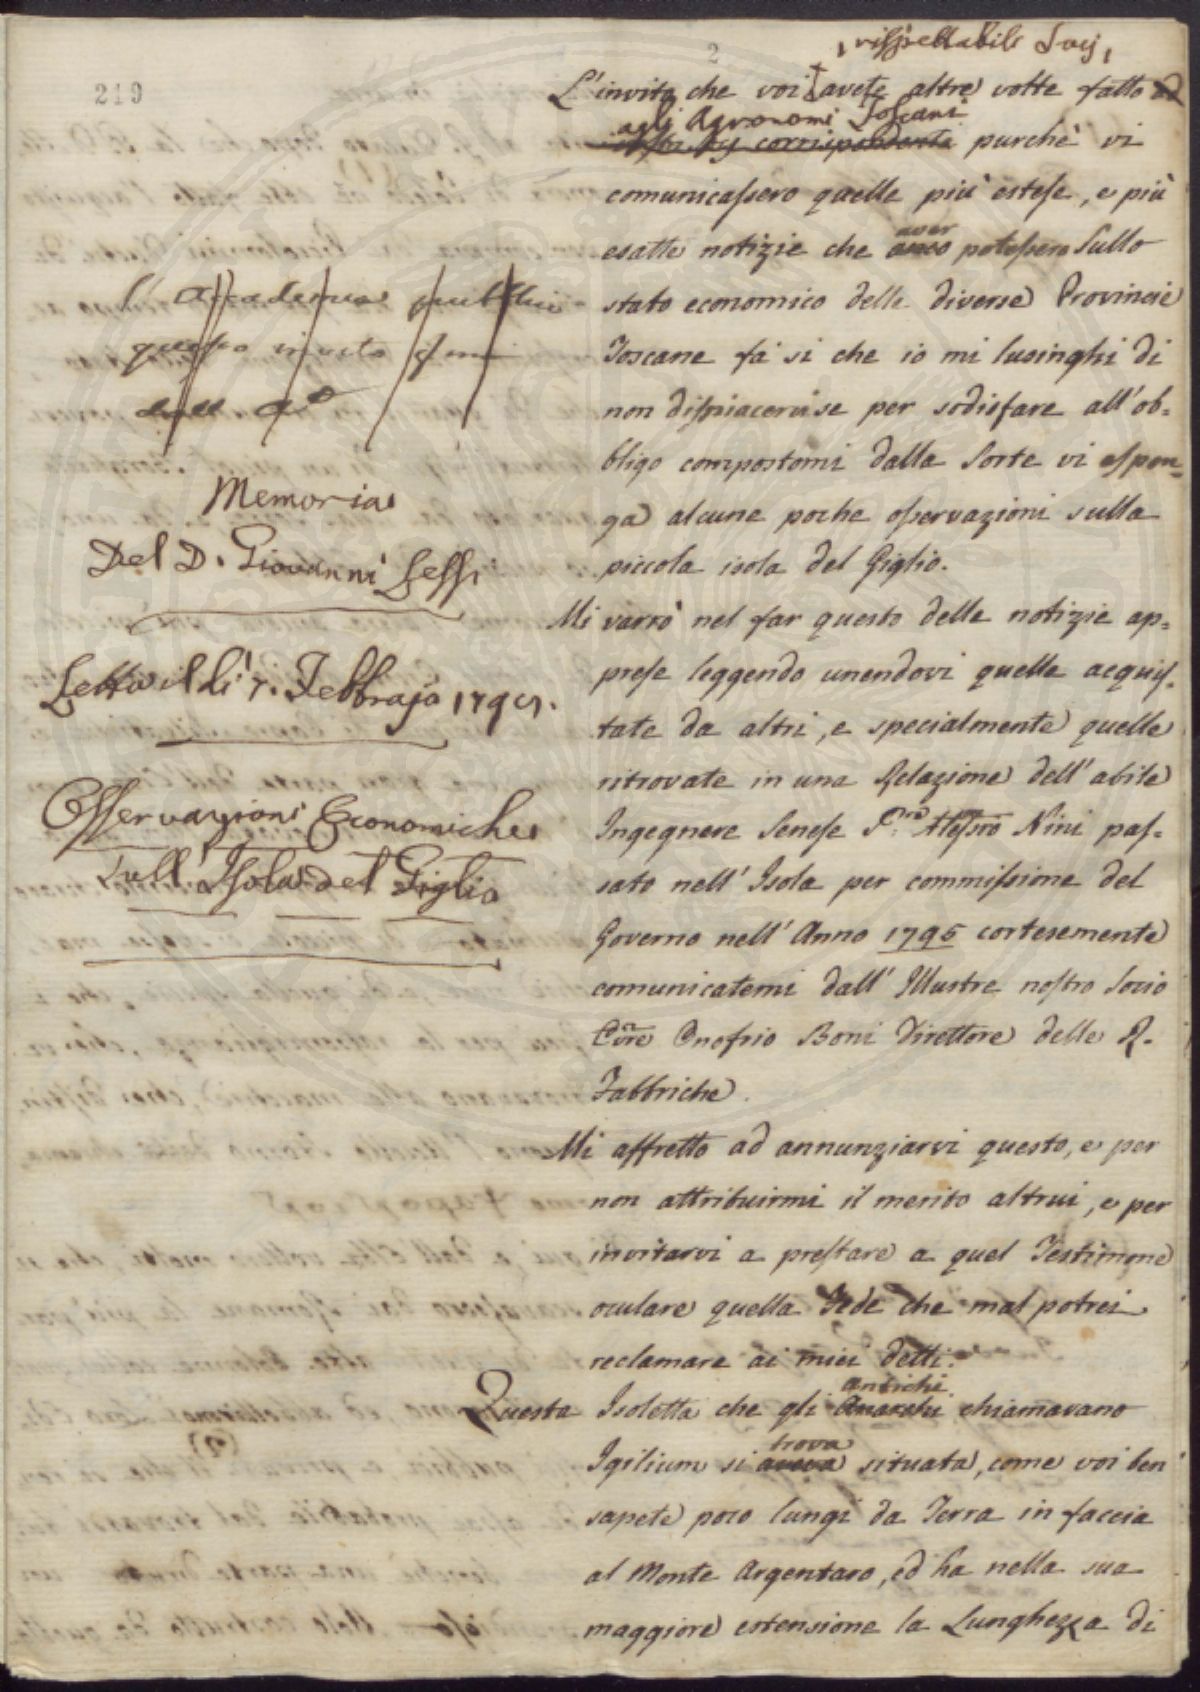 219
2
rispettabili Socj,
L'invito che voi avete altre volte fatto
agli Agronomi Toscani
corrispondenti purchè vi
comunicassero quelle più estese, e più
aver
esatte notizie che potessero sullo
stato economico delle diverse Provincie
Toscane fà sì che io mi lusinghi di
non dispiacervi se per sodisfare all'ob=
bligo compostomi dalla Sorte vi espon=
ga alcune poche osservazioni sulla
piccola isola del Giglio.
Mi varrò nel far questo delle notizie ap=
prese leggendo unendovi quelle acquis=
tate da altri, e specialmente quelle
ritrovate in una Relazione dell'abile
Ingegnere Senese Sig.re Alessro Nini pas=
sato nell'Isola per commissione del
Governo nell'Anno 1795 cortesemente
comunicatemi dall'Illustre nostro Socio
Onofrio Boni Direttore delle R.
Fabbriche.
Mi affretto ad annunziarvi questo, e per
non attribuirmi il merito altrui, e per
invitarvi a prestare a quel Testimone
oculare quella Fede che mal potrei
reclamare ai miei detti.
antichi
Questa Isoletta che gli chiamavano
trova
Igilium si situata, come voi ben
sapete poco lungi da Terra in faccia
al Monte Argentaro, ed ha nella sua
maggiore estensione la Lunghezza di
l'Accademia pubblicò
questo invito
dall'
Memoria
Del D. Giovanni Lessi
Letta il dì 7. Febbrajo 1798.
Osservazioni Economiche
sull'Isola del Giglio